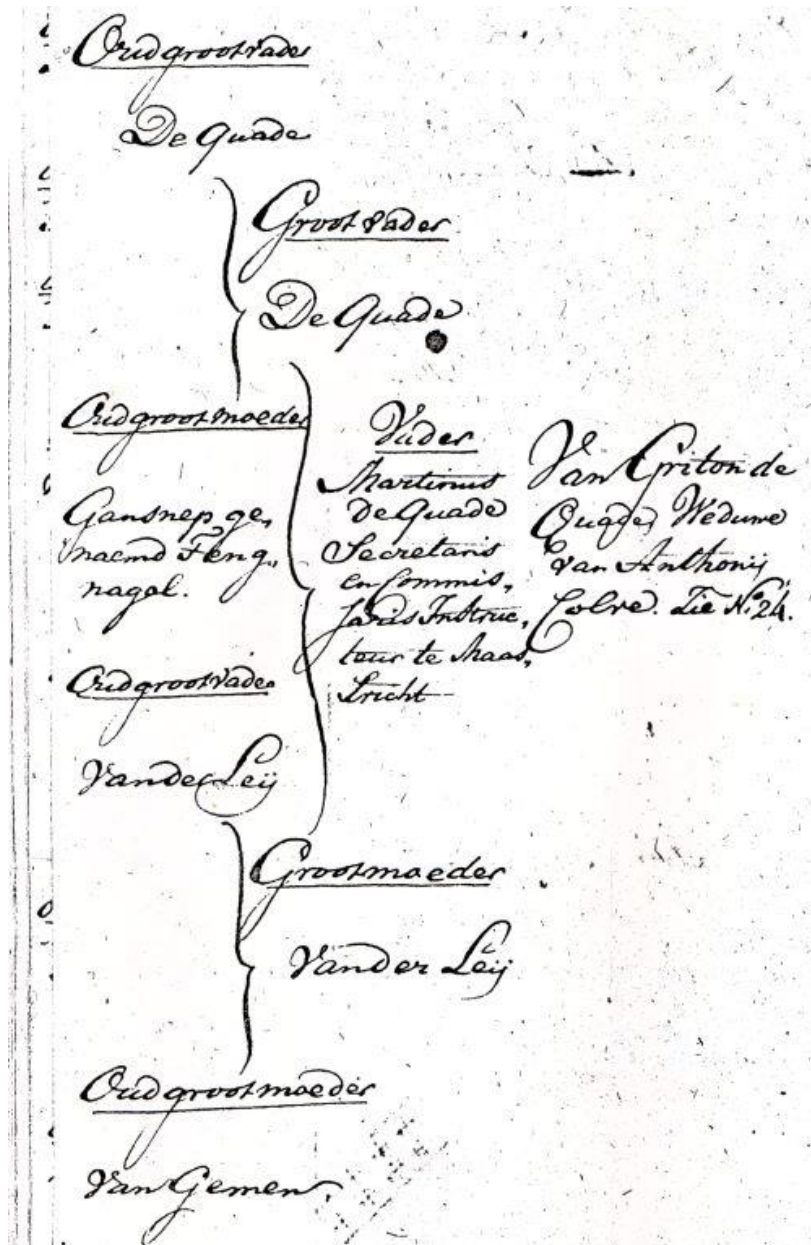 Oudgrootvader
De Quade
Grootvader
De Quade
Oudgrootmoeder
Gansnep, ge,
naemd Teng,
nagel.
Vader
Martinus
De Quade
Secretaris
en Commis,
saris Instruc,
teur te Maas,
tricht
Van Griton de
Quade, Weduwe
van Anthonij
Colve. Zie N:o 24.
Oudgrootvader
Vander Leij
Grootmoeder
Vander Leij
Oudgrootmoeder
Van Gemen.